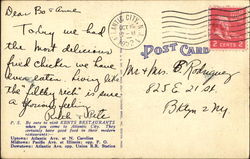 Dear Bo & Anne
Today we had
the most delicious
fried chicken we have
ever eaten. Living like
the "filthy rich" is sure
a grand feeling
Ruth & Pete
P. S. Be sure to visit KENTS RESTAURANTS
when you come to Atlantic City. They
certainly have good food in their modern
restaurants:
Uptown: Atlantic Ave. at N. Carolina
Midtown: Pacific Ave. at Illinois; opp. P. O.
Downtown: Atlantic Ave. opp. Union R.R. Station
ATLANTIC CITY, N.J.
POST CARD
2 CENTS 2
Mr & Mrs. B. Rodriguez
825 E 21 St.
Bklyn 2 NY